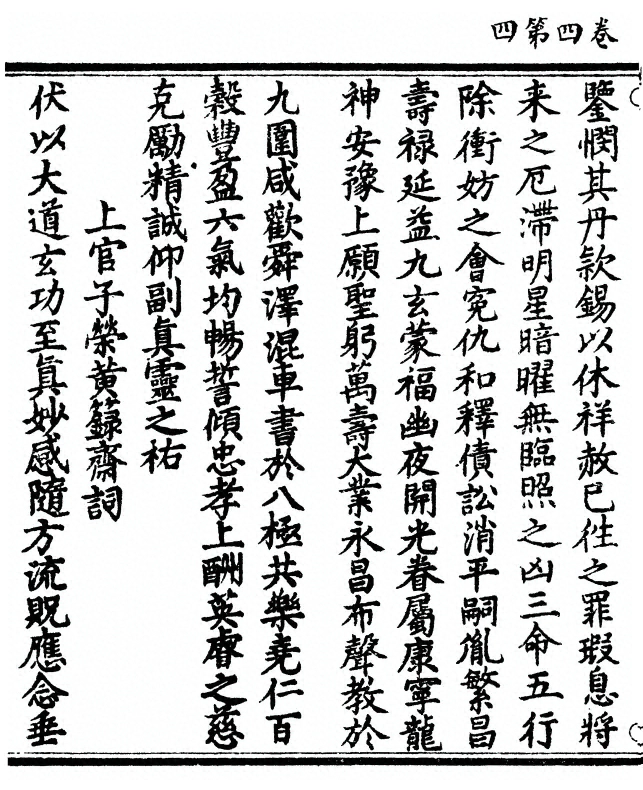 卷四第四
鑒憫其丹款錫以休祥赦已徃之罪瑕息將
来之厄滯明星暗曜無臨照之凶三命五行
除衝妨之會寃仇和釋債訟消平嗣胤繁昌
壽禄延益九玄蒙福幽夜開光眷屬康寧龍
神安豫上願聖躬萬壽大業永昌布聲教於
九圍咸歡舜澤混車書於八極共樂堯仁百
穀豐盈六氣均暢誓傾忠孝上酬英睿之慈
克勵精誠仰副真靈之祐
上官子榮黄籙齋詞
伏以大道玄功至真妙感隨方流貺應念垂